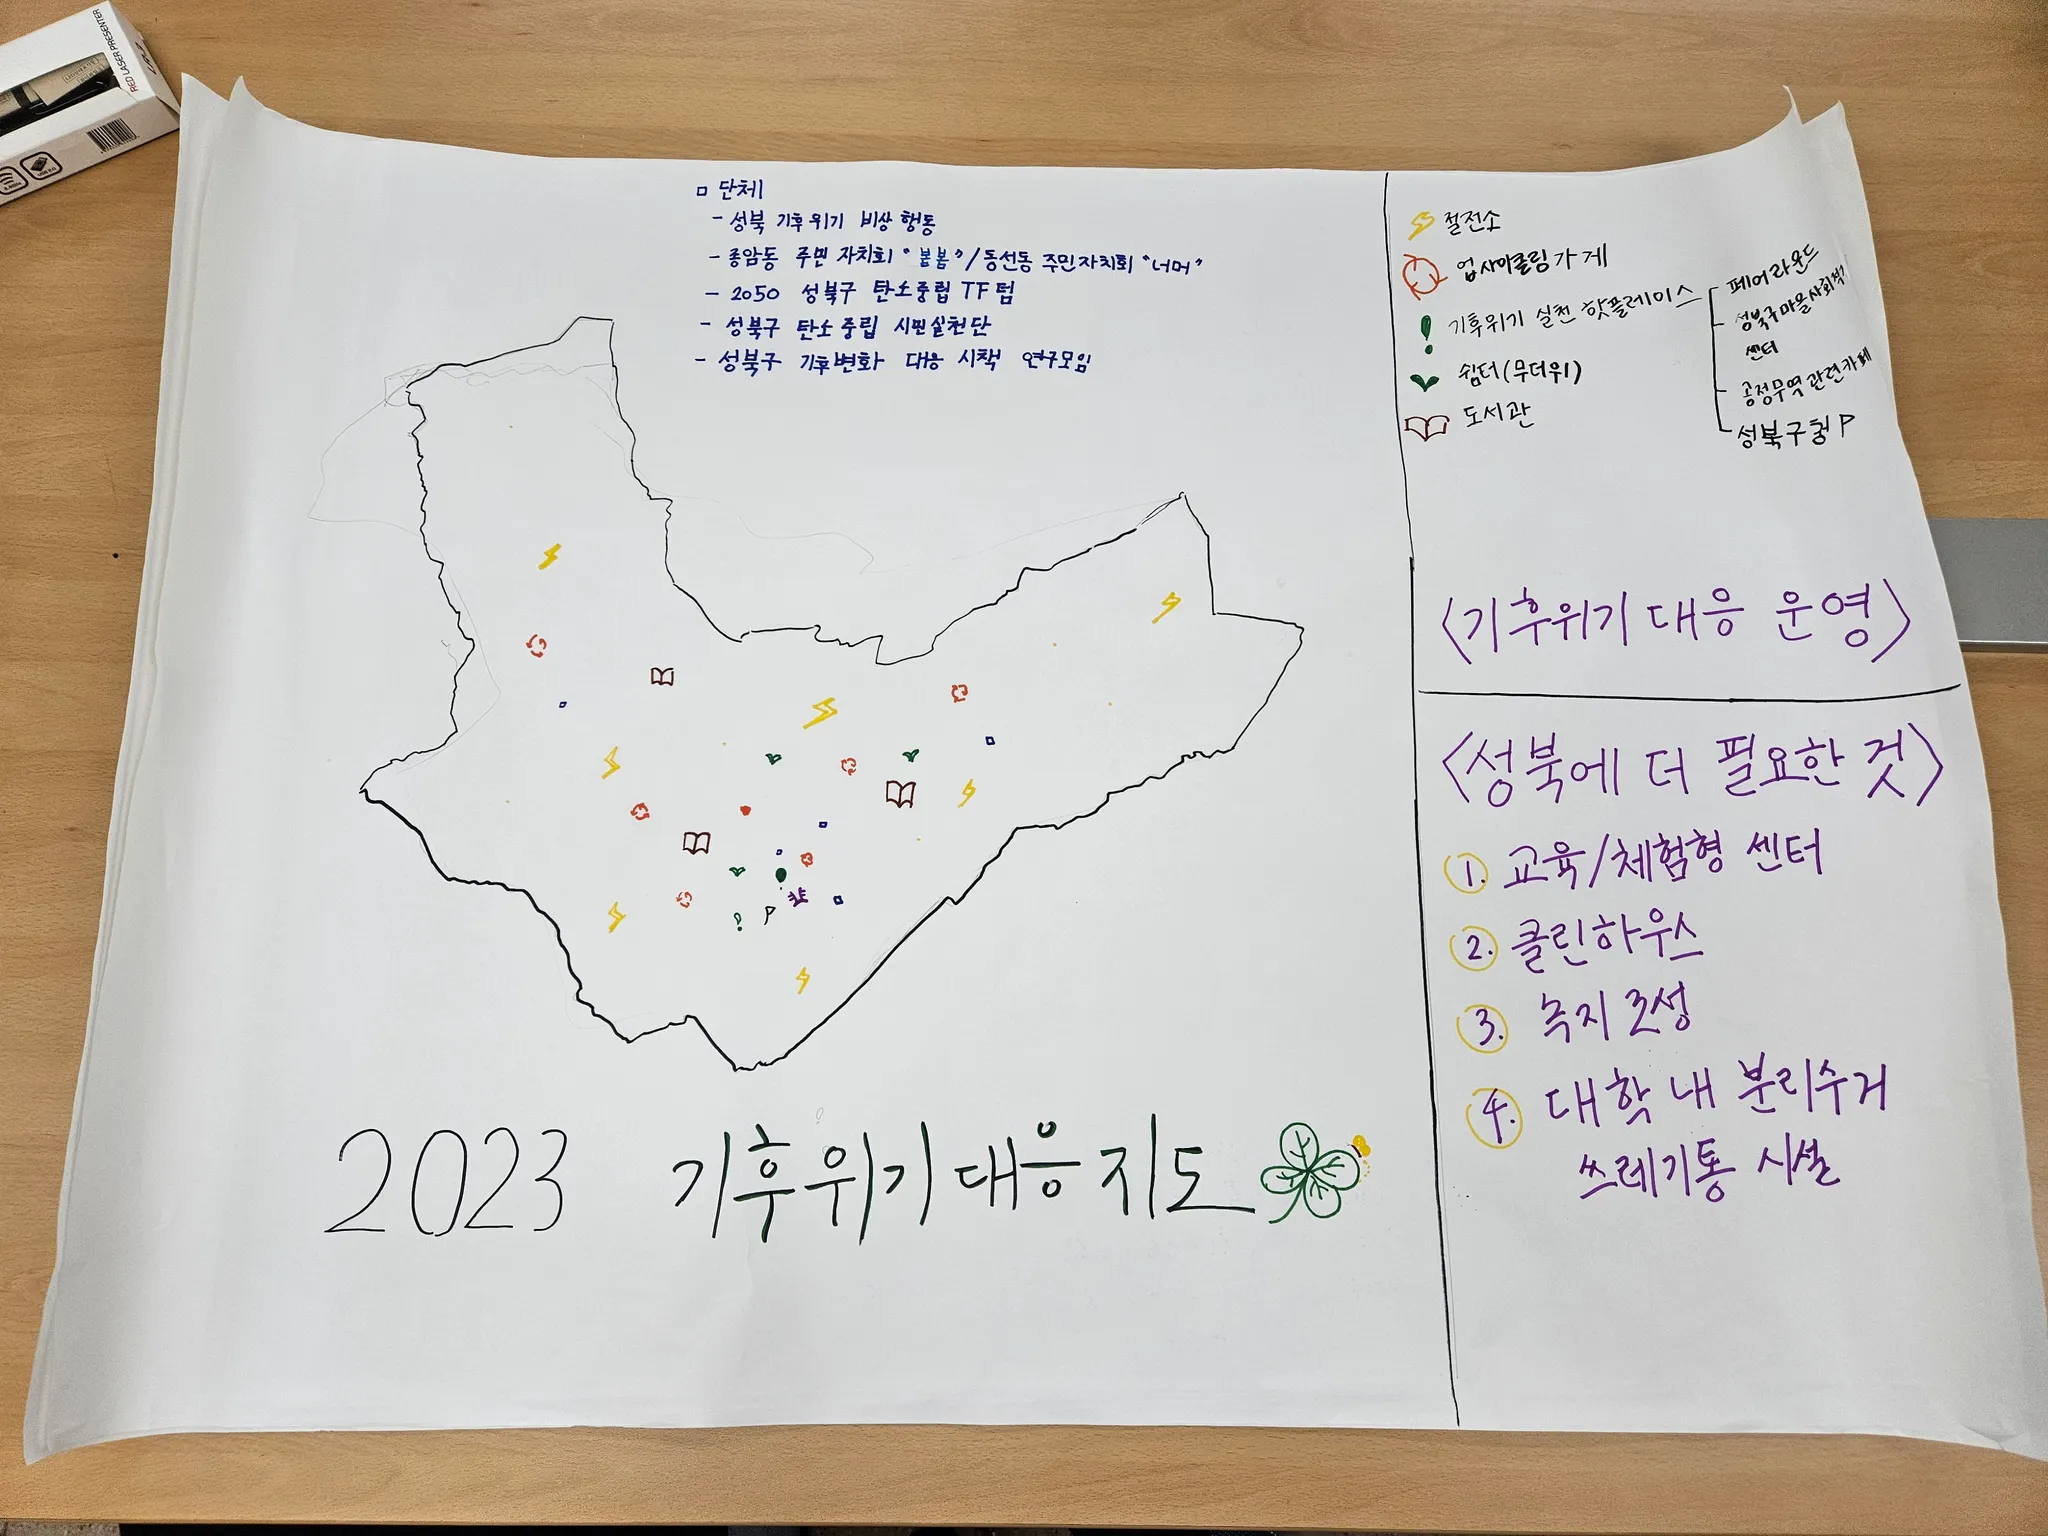 RED LASER PRESENTER
□ 단체
- 성북 기후위기 비상행동
- 종암동 주민 자치회 "봄봄" / 동선동 주민자치회 "너머"
- 2050 성북구 탄소중립 TF팀
- 성북구 탄소중립 시민실천단
- 성북구 기후변화 대응 시책 연구모임
절전소
업사이클링가게
기후위기 실천 핫플레이스
쉼터(무더위)
도서관
페어라운드
성북구마을사회적
센터
공정무역관련카페
성북구청 P
<기후위기 대응 운영>
<성북에 더 필요한 것>
1. 교육/체험형 센터
2. 클린하우스
3. 녹지 조성
4. 대학 내 분리수거
쓰레기통 시설
P
2023 기후위기대응지도